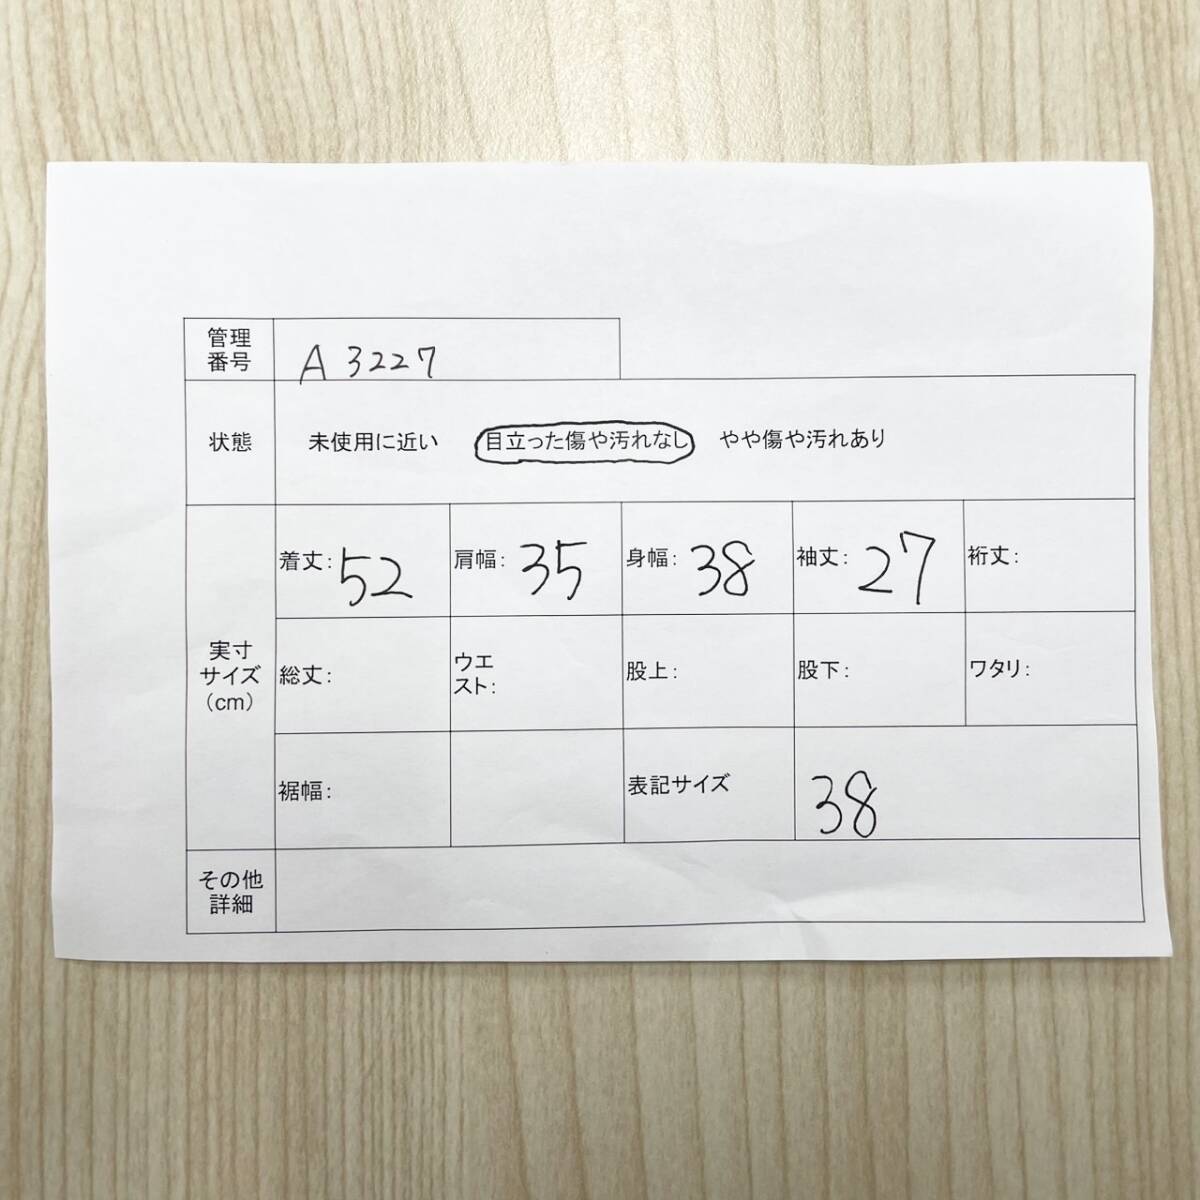 管理
番号
A 3227
状態
未使用に近い 目立った傷や汚れなし やや傷や汚れあり
実寸
サイズ
(cm)
着丈: 52
肩幅: 35
身幅: 38
袖丈: 27
裄丈:
総丈:
ウエ
スト:
股上:
股下:
ワタリ:
裾幅:
表記サイズ
38
その他
詳細